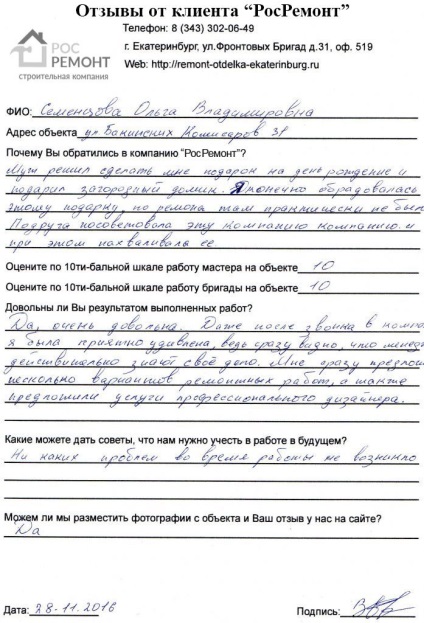 Отзывы от клиента “РосРемонт”
Телефон: 8 (343) 302-06-49
г. Екатеринбург, ул.Фронтовых Бригад д.31, оф. 519
Web: http://remont-otdelka-ekaterinburg.ru
РОС
РЕМОНТ
строительная компания
ФИО: Семенцова Ольга Владимировна
Адрес объекта ул Бакинских Комисаров 31
Почему Вы обратились в компанию “РосРемонт”?
Муж решил сделать мне подарок на день рождение и
подарил загородный домик. Я конечно обрадовалась
этому подарку, но ремонта там практически не был
Подруга посоветовала эту компанию компанию. и
при этом нахваливала ее.
Оцените по 10ти-бальной шкале работу мастера на объекте 10
Оцените по 10ти-бальной шкале работу бригады на объекте 10
Довольны ли Вы результатом выполненных работ?
Да, очень довольна. Даже после звонка в компа
я была приятно удивлена, ведь сразу видно, что менед
действительно знают своё дело. Мне сразу предлож
несколько вариантов ремонтных работ, а также
предложили услуги профессионального дизайнера.
Какие можете дать советы, что нам нужно учесть в работе в будущем?
Ни каких проблем во время работы не возникло
Можем ли мы разместить фотографии с объекта и Ваш отзыв у нас на сайте?
Да
Дата: 28-11.2016 Подпись: